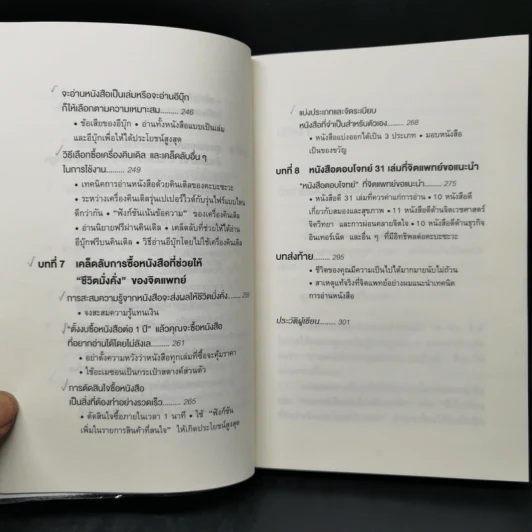 จะอ่านหนังสือเป็นเล่มหรือจะอ่านอีบุ๊ก
ก็ให้เลือกตามความเหมาะสม.......... 246
• ข้อเสียของอีบุ๊ก • อ่านทั้งหนังสือแบบเป็นเล่ม
และอีบุ๊กเพื่อให้ได้ประโยชน์สูงสุด
วิธีเลือกซื้อเครื่องคินเดิล และเคล็ดลับอื่น ๆ
ในการใช้งาน.......... 249
• เทคนิคการอ่านหนังสือด้วยคินเดิลของคะบะซะวะ
• ระหว่างเครื่องคินเดิลรุ่นเปเปอร์ไวต์กับรุ่นไฟร์แบบไหน
ดีกว่ากัน • “ฟังก์ชันเน้นข้อความ” ของเครื่องคินเดิล
• อ่านนิยายฟรีผ่านคินเดิล • เคล็ดลับที่ช่วยให้ได้อ่าน
อีบุ๊กฟรีบนคินเดิล • วิธีอ่านอีบุ๊กโดยไม่ใช้เครื่องคินเดิล
บทที่ 7 เคล็ดลับการซื้อหนังสือที่ช่วยให้
“ชีวิตมั่งคั่ง” ของจิตแพทย์
การสะสมความรู้จากหนังสือจะส่งผลให้ชีวิตมั่งคั่ง.......... 259
• จงสะสมความรู้แทนเงิน
“ตั้งงบซื้อหนังสือต่อ 1 ปี” แล้วคุณจะซื้อหนังสือ
ที่อยากอ่านได้โดยไม่ลังเล.......... 261
• อย่าตั้งความหวังว่าหนังสือทุกเล่มที่ซื้อจะคุ้มราคา
• ใช้อะเมซอนเป็นกระเป๋าสตางค์ส่วนตัว
การตัดสินใจซื้อหนังสือ
เป็นสิ่งที่ต้องทำอย่างรวดเร็ว.......... 265
• ตัดสินใจซื้อภายในเวลา 1 นาที • ใช้ “ฟังก์ชัน
เพิ่มในรายการสินค้าที่สนใจ” ให้เกิดประโยชน์สูงสุด
แบ่งประเภทและจัดระเบียบ
หนังสือที่จำเป็นสำหรับตัวเอง.......... 268
• หนังสือแบ่งออกได้เป็น 3 ประเภท • มอบหนังสือ
เป็นของขวัญ
บทที่ 8 หนังสือตอบโจทย์ 31 เล่มที่จิตแพทย์ขอแนะนำ
“หนังสือตอบโจทย์” ที่จิตแพทย์ขอแนะนำ.......... 275
• หนังสือดี 31 เล่มที่ควรค่าแก่การอ่าน • 10 หนังสือดี
เกี่ยวกับสมองและสุขภาพ • 11 หนังสือดีด้านจิตเวชศาสตร์
จิตวิทยา และการผ่อนคลายจิตใจ • 10 หนังสือดีด้านธุรกิจ
อินเทอร์เน็ต และอื่น ๆ ที่มีอิทธิพลต่อคะบะซะวะ
บทส่งท้าย.......... 295
• ชีวิตของคุณมีความเป็นไปได้มากมายนับไม่ถ้วน
• สาเหตุแท้จริงที่จิตแพทย์อย่างผมแนะนำเทคนิค
การอ่านหนังสือ
ประวัติผู้เขียน.......... 301